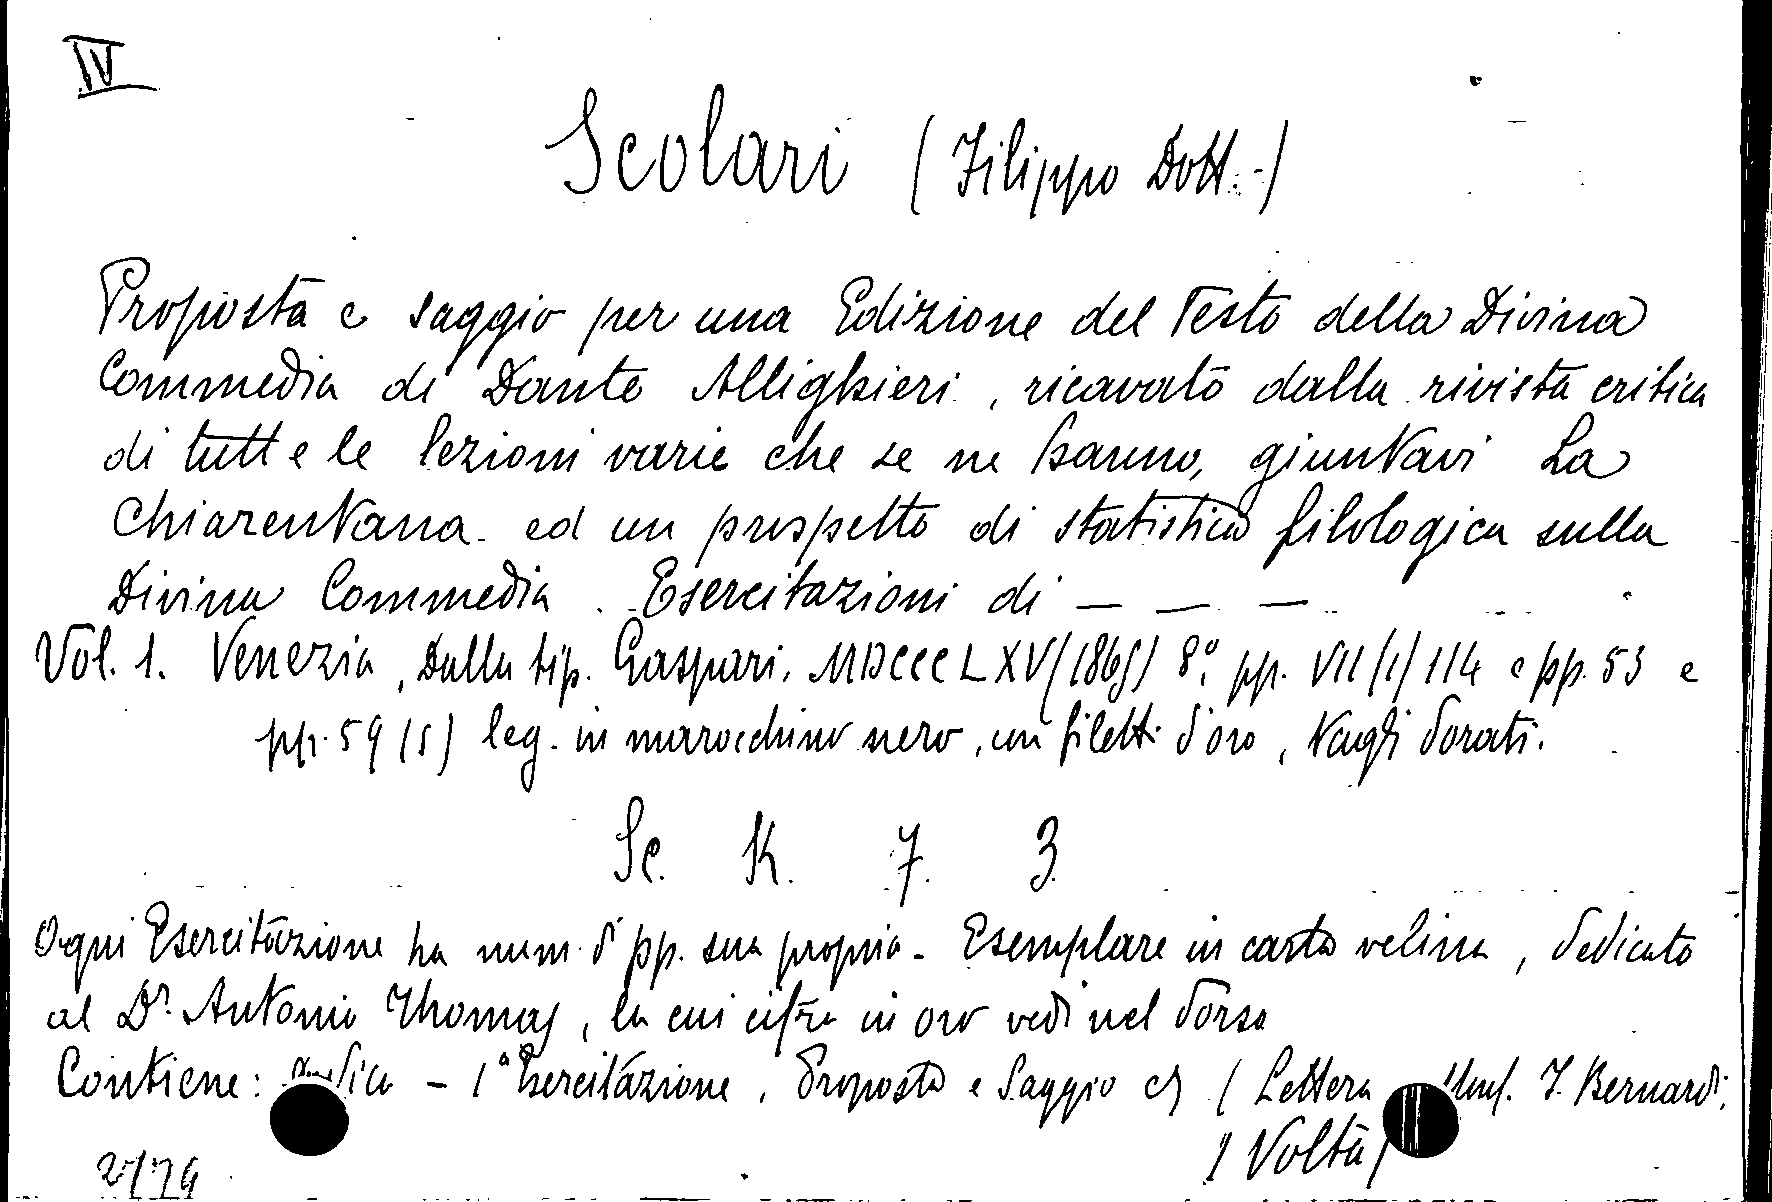 IV
Scolari (Filippo Dott.)
Proposta e saggio per una Edizione del Testo della Divina
Commedia di Dante Allighieri, ricavato dalla rivista critica
di tutte le lezioni varie che se ne hanno, giuntavi La
Chiarentana ed un prospetto di statistica filologica sulla
Divina Commedia. Esercitazioni di — — —
Vol. 1. Venezia, Dalla tip. Gaspari, MDCCCLXV (1865) 8.° pp. VII (1) 114 e pp. 53 e
pp. 59 (5) leg. in marocchino nero, con filetti d'oro, tagli dorati.
Sc. K. 7. 3
Ogni Esercitazione ha num. di pp. sua propria - Esemplare in carta velina, dedicato
al Dr. Antonio Thomas, la cui cifra in oro vedi nel dorso
Contiene: Dedica - 1ª Esercitazione. Proposta e Saggio (Lettera Monsr. J. Bernardi,
(Volta)
2/79